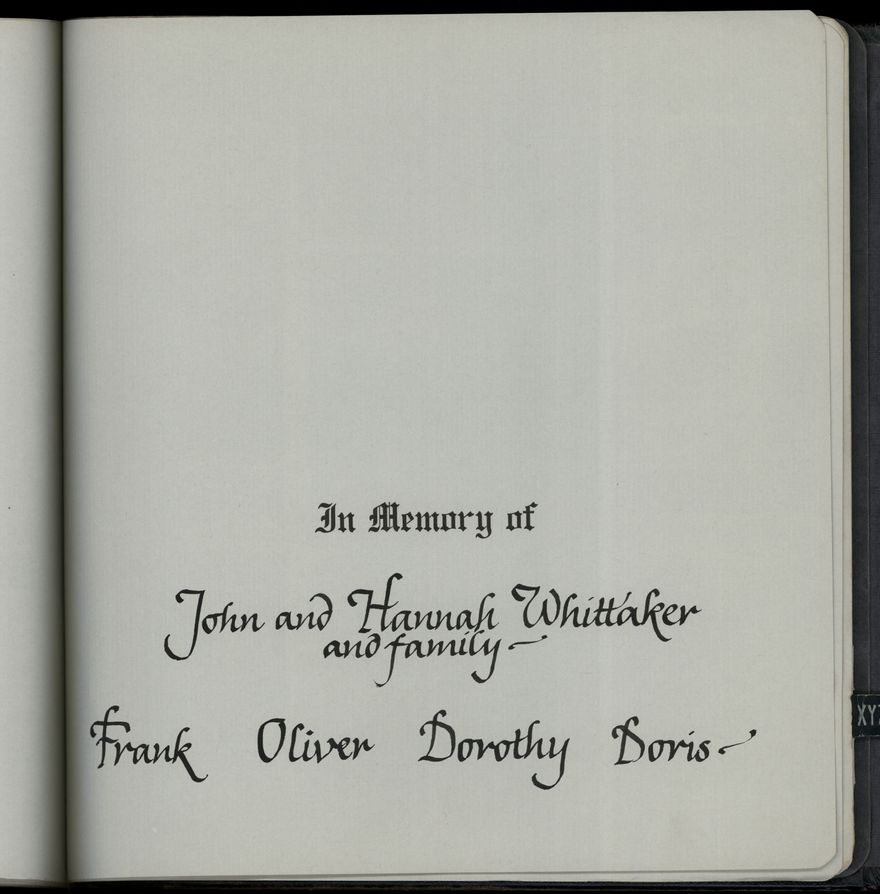 In Memory of
John and Hannah Whittaker
and family
Frank Oliver Dorothy Doris
XYZ